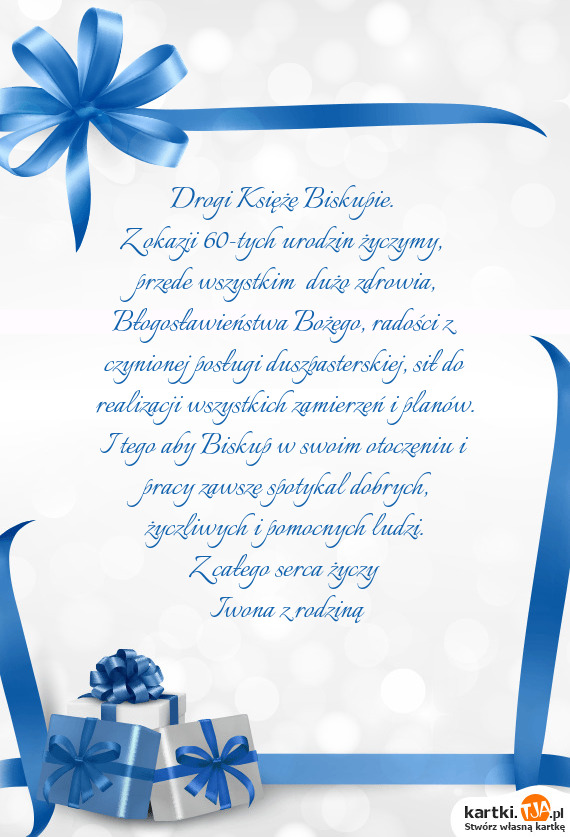 Drogi Księże Biskupie.
Z okazji 60-tych urodzin życzymy,
przede wszystkim dużo zdrowia,
Błogosławieństwa Bożego, radości z
czynionej posługi duszpasterskiej, sił do
realizacji wszystkich zamierzeń i planów.
I tego aby Biskup w swoim otoczeniu i
pracy zawszę spotykał dobrych,
życzliwych i pomocnych ludzi.
Z całego serca życzy
Iwona z rodziną
kartki.TJA.pl
Stwórz własną kartkę